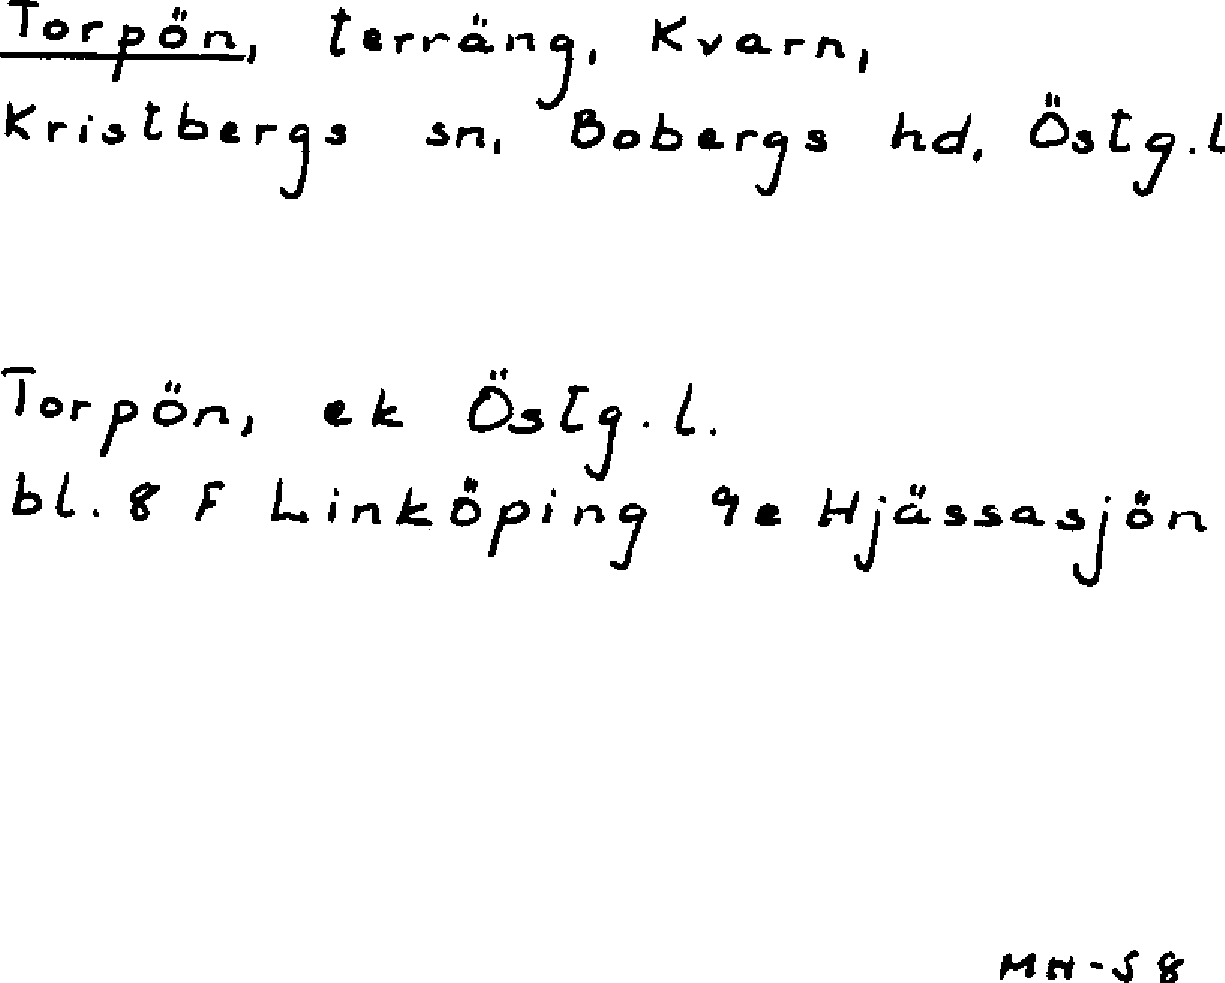 Torpön, terräng, Kvarn,
Kristbergs sn, Bobergs hd, Östg.l
Torpön, ek Östg.l.
bl. 8 F Linköping 9e Hjässasjön
MH-58